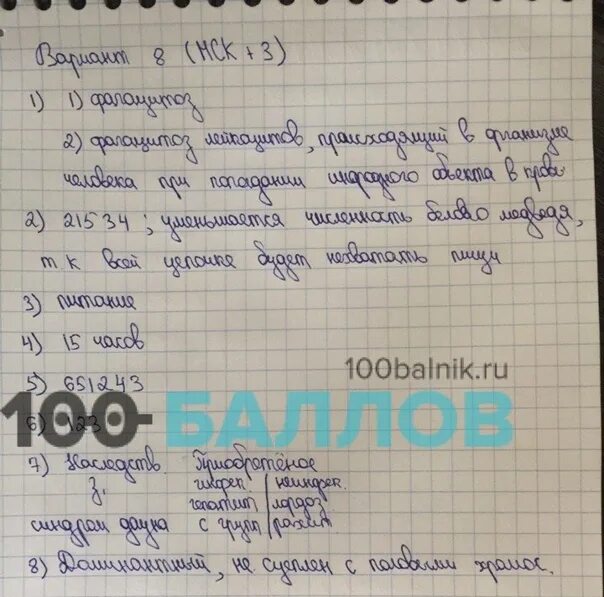 Вариант 8 (МСК + 3)
1) 1) фагоцитоз
2) фагоцитоз лейкоцитов, происходящий в организме
человека при попадании инородного объекта в кровь
2) 21534 ; уменьшается численность белого медведя,
т.к всей цепочке будет нехватать пищи
3) питание
4) 15 часов
100balnik.ru
5) 651243
100-БАЛЛОВ
6) 123
7) Наследств. Приобретёное
з. инфек. | неинфек.
гепатит | лордоз
синдром дауна с грипп | рахит.
8) Доминантный, не сцеплен с половыми хромос.